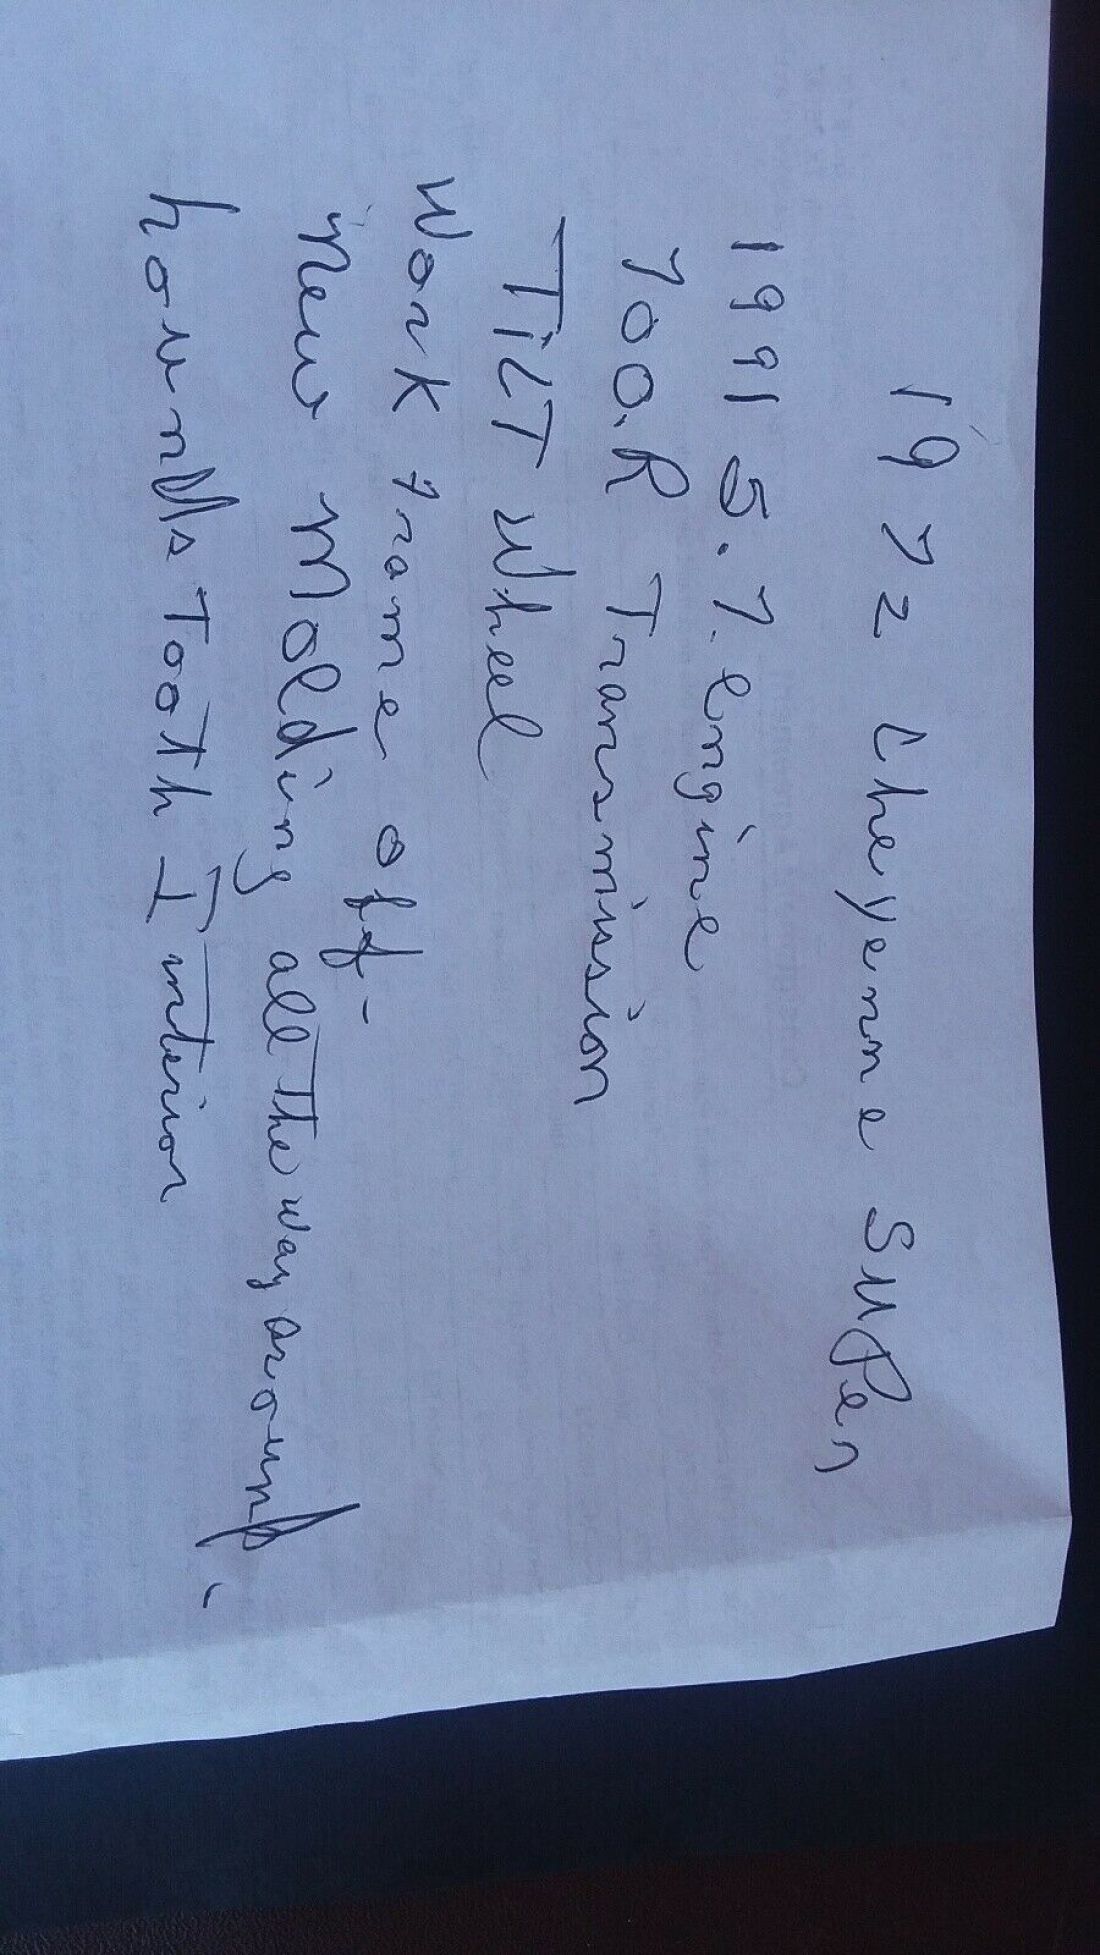 1972 Cheyenne Super
1991 5.7. engine
700.R Transmission
TiLT Wheel
Work frame off -
New Molding all The way around -
hounds Tooth Interior